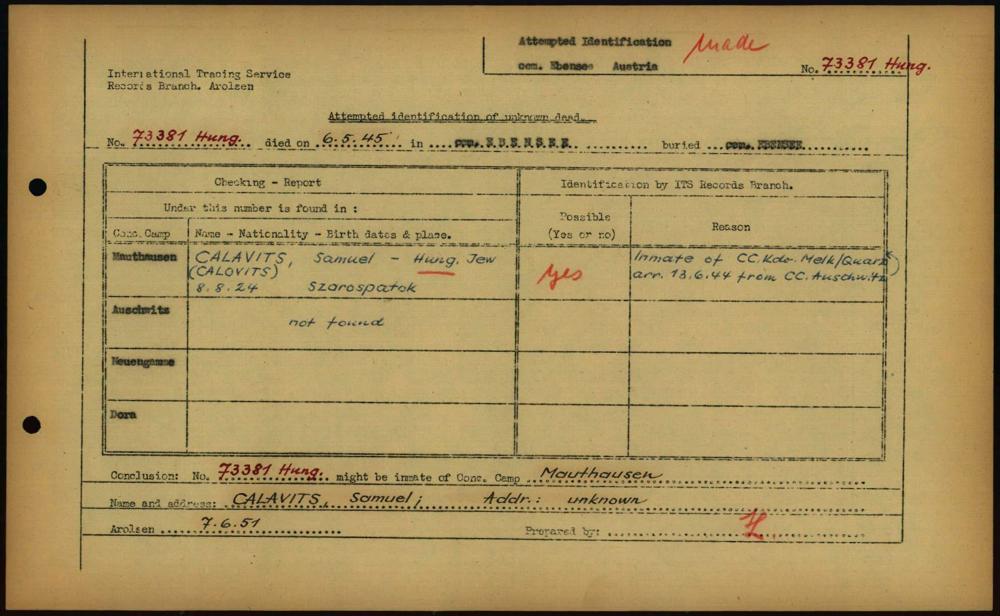 Attempted Identification made
com. Ebensee Austria
No. 73381 Hung.
International Tracing Service
Records Branch. Arolsen
Attempted identification of unknown dead.
No. 73381 Hung. died on 6.5.45 in com. EBENSEE buried com. EBENSEE
Checking - Report
Identification by ITS Records Branch.
Under this number is found in :
Conc. Camp
Name - Nationality - Birth dates & place.
Possible
(Yes or no)
Reason
Mauthausen
CALAVITS, Samuel - Hung. Jew
(CALOVITS)
8.8.24 Szarospatok
yes
Inmate of CC.Kdo. Melk/Quarz)
arr. 13.6.44 from CC. Auschwitz
Auschwitz
not found
Neuengamme
Dora
Conclusion: No. 73381 Hung. might be inmate of Conc. Camp Mauthausen
Name and address: CALAVITS, Samuel; Addr.: unknown
Arolsen 7.6.51
Prepared by: